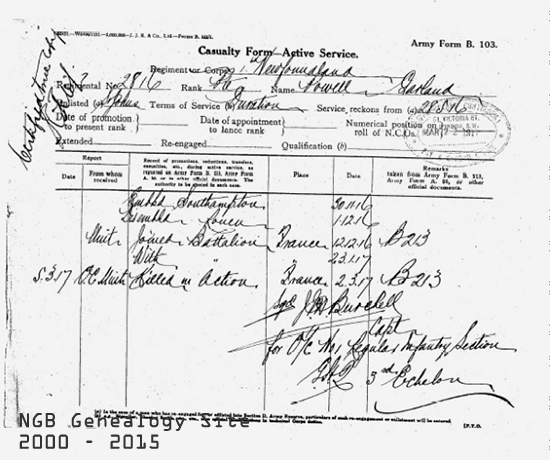 Army Form B. 103.
Casualty Form—Active Service.
Regiment or Corps 1 Newfoundland
Regimental No. 2816 Rank Pte Name Powell Garland
Enlisted (a) Terms of Service (a) Duration Service reckons from (a) 28.5.16
Date of promotion to present rank Date of appointment to lance rank Numerical position on roll of N.C.Os.
Extended Re-engaged Qualification (b)
Report
Date From whom received
Record of promotions, reductions, transfers, casualties, etc., during active service, as reported on Army Form B. 213, Army Form A. 36, or in other official documents. The authority to be quoted in each case.
Place
Date
Remarks taken from Army Form B. 213, Army Form A. 36, or other official documents.
Southampton 30.11.16
Rouen 1.12.16
Unit Joined Battalion France 12.12.16 B213
With " 23.1.17
5.3.17 O.C. Unit Killed in Action France 2.3.17 B213
sgd J.H. Burchell
Capt
for O/C No 1 Regular Infantry Section
3rd Echelon
[P.T.O.
NGB Genealogy Site
2000 - 2015